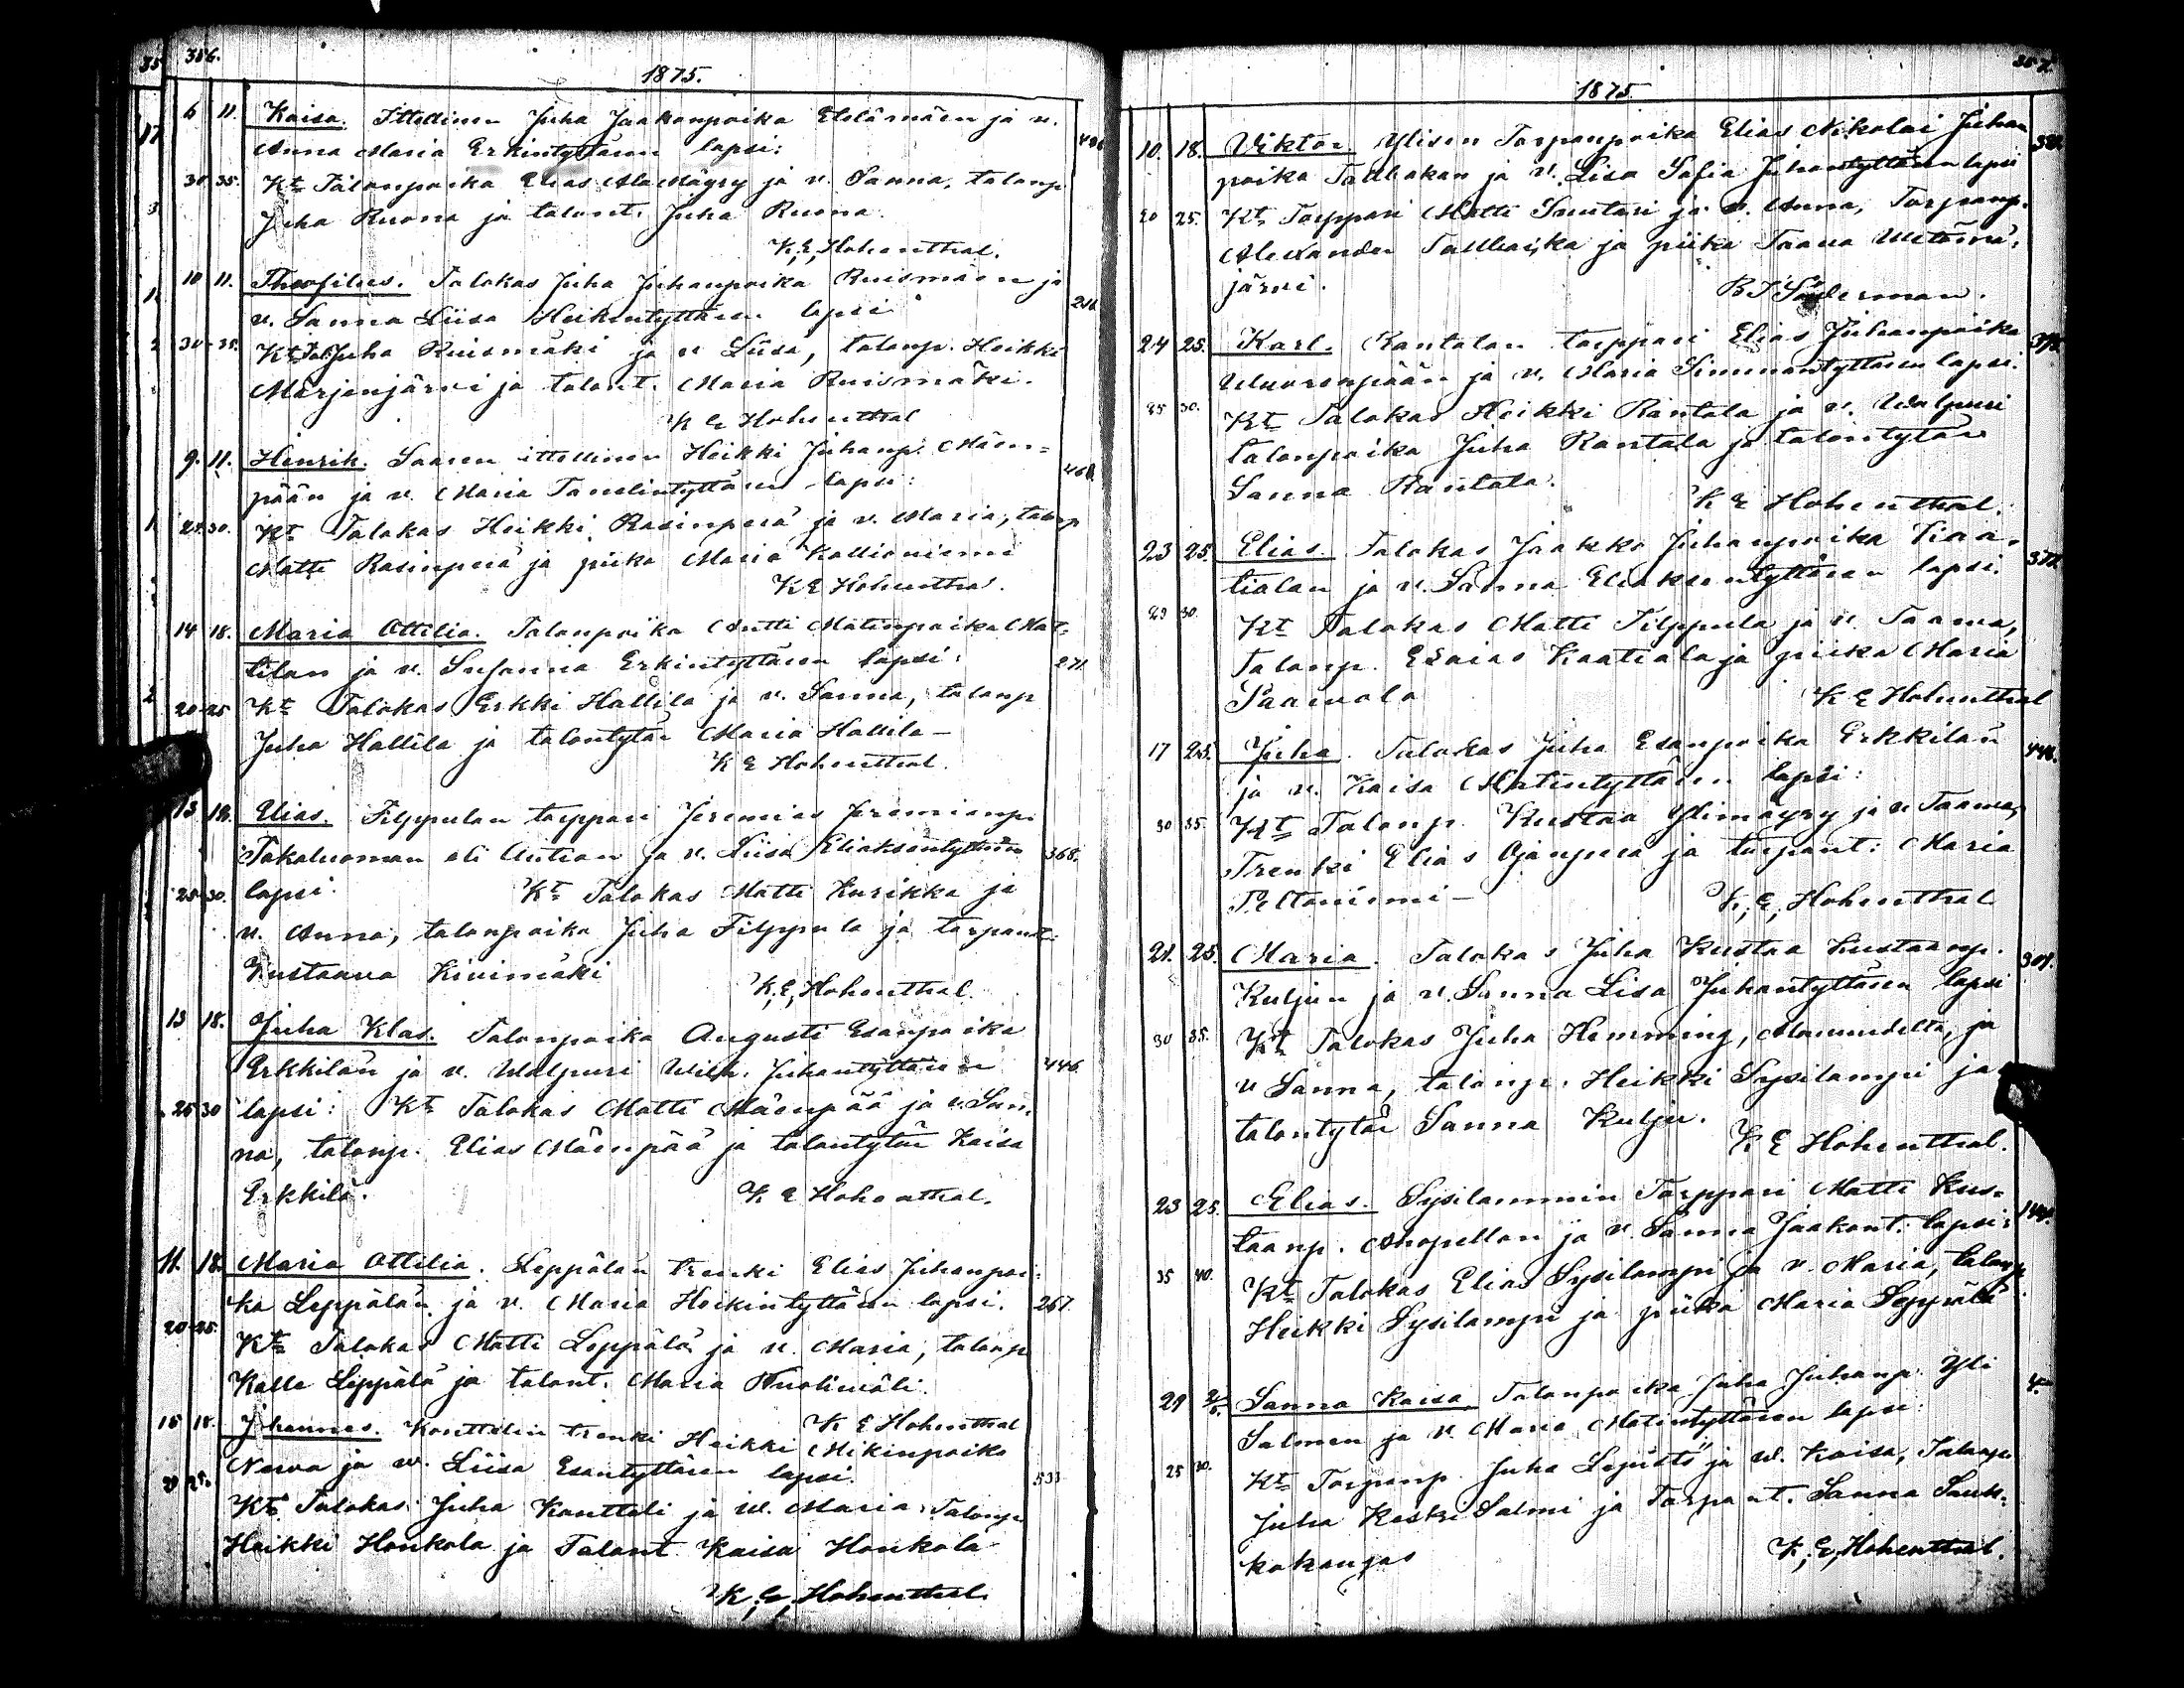 356.
1875.
6 11. Kaisa. Ittellinen Juha Jaakonpoika Etelämäen ja v.
Anna Maria Erkintyttären lapsi:
30 35. Kt. Talonpoika Elias AlaMäyry ja v. Sanna, talonp
Juha Ruona ja talont. Juha Ruona.
K, E, Hohenthal.
10 11. Theofilus. Talokas Juha Juhanpoika Ruismäen ja
v. Sanna Liisa Heikintyttären lapsi
30-35. Kt Tal. Juha Ruismäki ja v Liisa, talonp. Heikki
Marjenjärvi ja talont. Maria Ruismäki.
K E Hohenthal
9. 11. Henrik. Saaren ittellinen Heikki Juhanp. Mäen=
pään ja v. Maria Tanelintyttären lapsi: 468
25. 30. Kt Talokas Heikki Rasinperä ja v. Maria, talonp
Matti Rasinperä ja piika Maria Kallioniemi
K E Hohenthal.
14 18. Maria Ottilia. Talonpoika Antti Matinpoika Mat=
tilan ja v. Susanna Erkintyttären lapsi: 271.
20-25 Kt Talokas Erkki Hallila ja v. Sanna, talonp
Juha Hallila ja talontytär Maria Hallila-
K E Hohenthal.
13. 18. Elias. Filppulan torppari Jeremias Jeremianp.
Takaluoman eli Antian ja v. Liisa Eliaksentyttären 368.
25-30. lapsi. Kt Talokas Matti Kurikka ja
v. Anna, talonpoika Juha Filppula ja torpant:
Kustaava Kivimäki
K, E, Hohenthal.
13 18. Juha Klas. Talonpoika Augusti Esanpoika
Erkkilän ja v. Walpuri Wilh. Juhantyttären 446
25 30 lapsi: Kt Talokas Matti Mäenpää ja v. San-
na, talonp. Elias Mäenpää ja talontytär Kaisa
Erkkilä. K E Hohenthal.
11. 18. Maria Ottilia. Leppälän trenki Elias Juhanpoi-
ka Leppälän ja v. Maria Heikintyttären lapsi. 267.
20-25. Kt Talokas Matti Leppälä ja v. Maria, talonp
Kalle Leppälä ja talont. Maria
K E Hohenthal
15 18. Johannes. Konttelin trenki Heikki Mikinpoika
Nerva ja w. Liisa Esantyttären lapsi. 533
Kt Talokas Juha Kontteli ja w. Maria, Talonp
Heikki Honkola ja Talont Kaisa Honkola
K, E, Hohenthal.
357.
1875
10. 18. Viktor. Ylisen Torpanpoika Elias Nikolai Juhan
poika Tallbakan ja v. Lisa Sofia Juhantyttären lapsi
20 25. Kt Torppari Matti Suutari ja v. Anna, Torpanp.
Alexander Tallbacka ja piika Taava
järvi. B J Söderman.
24 25. Karl. Rantalan torppari Elias Juhanpoika
Wuorenpään ja v. Maria Simunantyttären lapsi.
25 30. Kt Talokas Heikki Rantala ja v. Walpuri
talonpoika Juha Rantala ja talontytär
Sanna Rantala.
K E Hohenthal.
23 25. Elias. Talokas Jaakko Juhanpoika Kaa-
tialan ja v. Sanna Eliaksentyttären lapsi
29 30. Kt Talokas Matti Filppula ja v. Taava,
Talonp. Esaias Kaatiala ja piika Maria
Paavola K E Hohenthal
17 25. Juha. Talokas Juha Esanpoika Erkkilän 446.
ja v. Kaisa Matintyttären lapsi:
30 35. Kt Talonp. Kustaa Ylimäyry ja v Taava,
Trenki Elias Ojanperä ja torpant: Maria
Peltoniemi- K, E, Hohenthal
21. 25. Maria. Talokas Juha Kustaa Kustaanp.
Kuljun ja v. Sanna Lisa Juhantyttären lapsi
30 35. Kt Talokas Juha Hemming, Alavudelta, ja
v Sanna, talonp. Heikki Sysilampi ja
talontytär Sanna Kulju.
K E Hohenthal.
23 25. Elias. Sysilammin Torppari Matti Kus=
taanp. ja v. Sanna Jaakont. lapsi:
35 40. Kt Talokas Elias Sysilampi ja v. Maria, talonp
Heikki Sysilampi ja piika Maria Seppälä
29 Sanna Kaisa Talonpoika Juha Juhanp. Yli
Salmen ja v. Maria Matintyttären lapsi:
25 30. Kt Torpanp. Juha Lepistö ja w. Kaisa, Talonp.
Juha KeskiSalmi ja Torpant. Sanna Sauk-
kokangas K, E, Hohenthal.